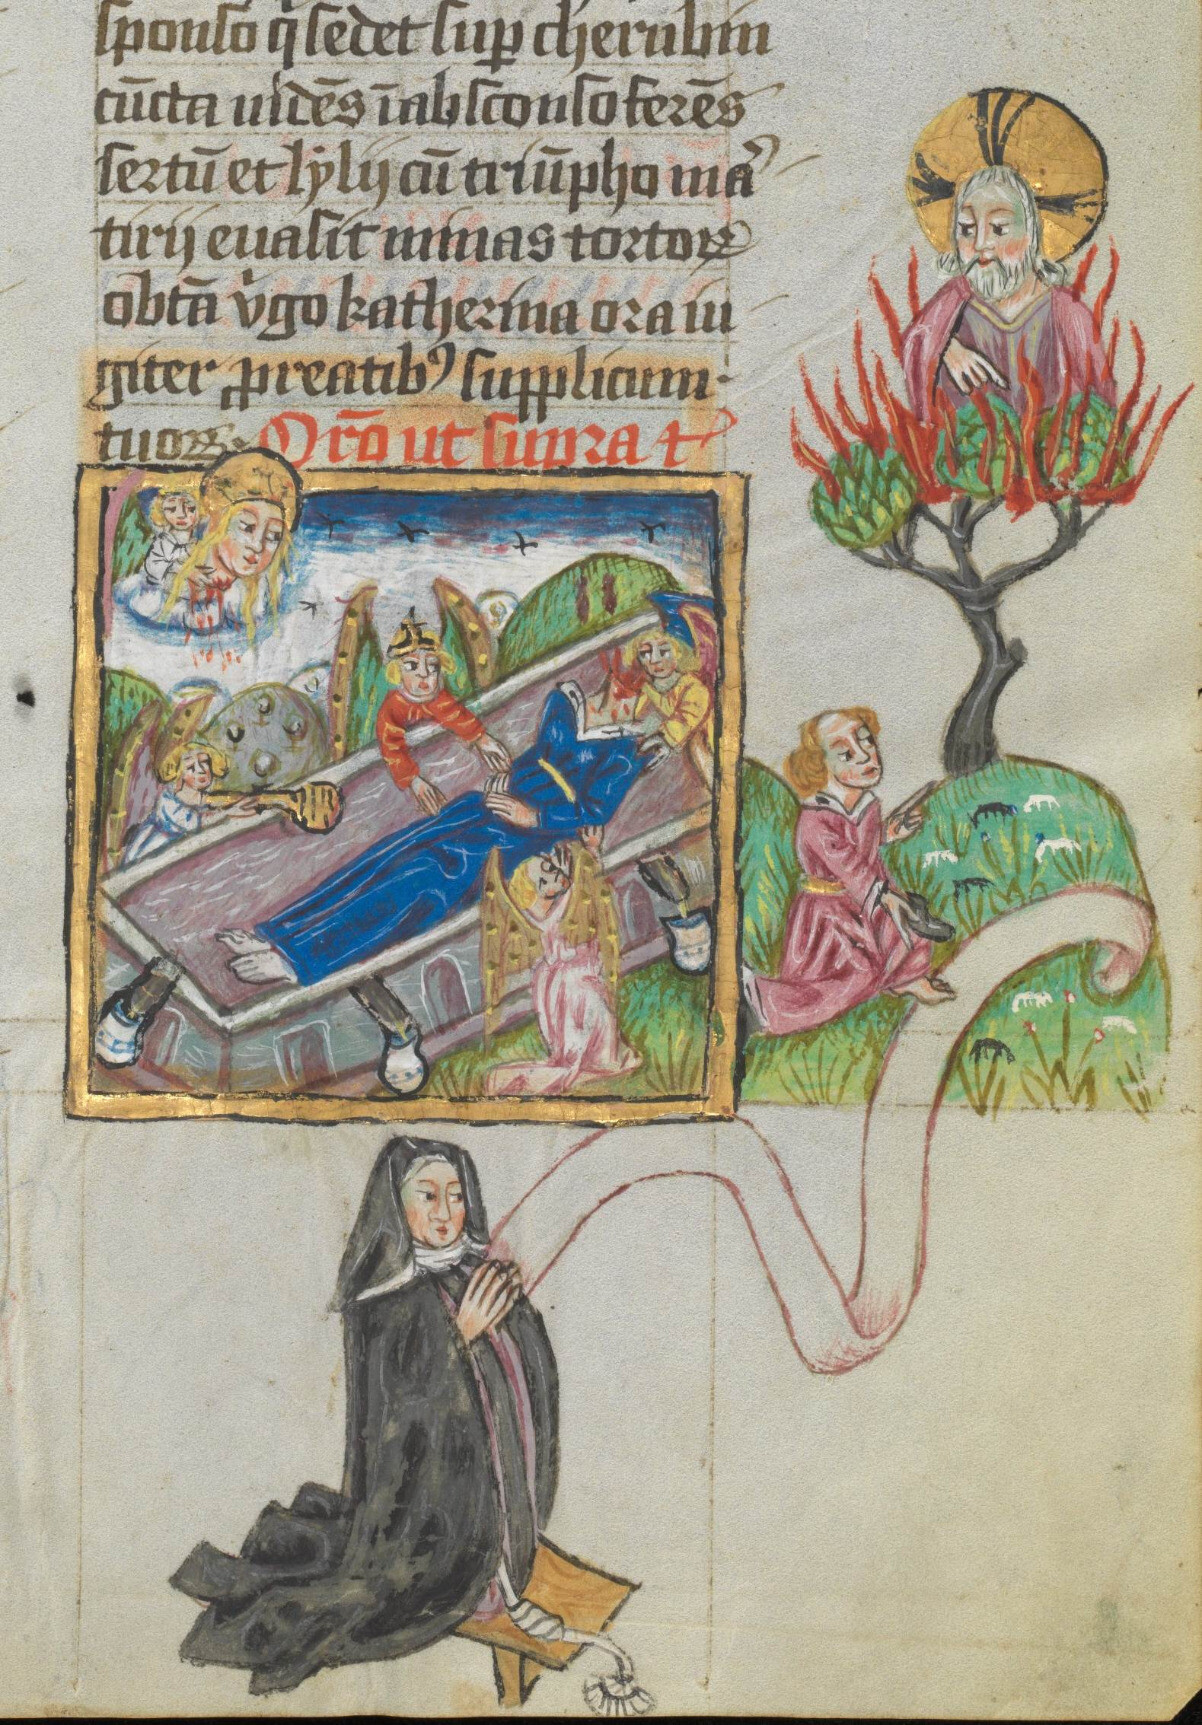 sponso q̇ sedet sup̱ cherubin
cūcta uidēs ī absconso ferēs
sertū et lylij cū triūpho ma᷒
tirij euasit minas tortoꝝ
obtā v̇go katherina ora iu
giter p̱ reatibꝰ supplicum
tuoꝝ. Orō ut supra